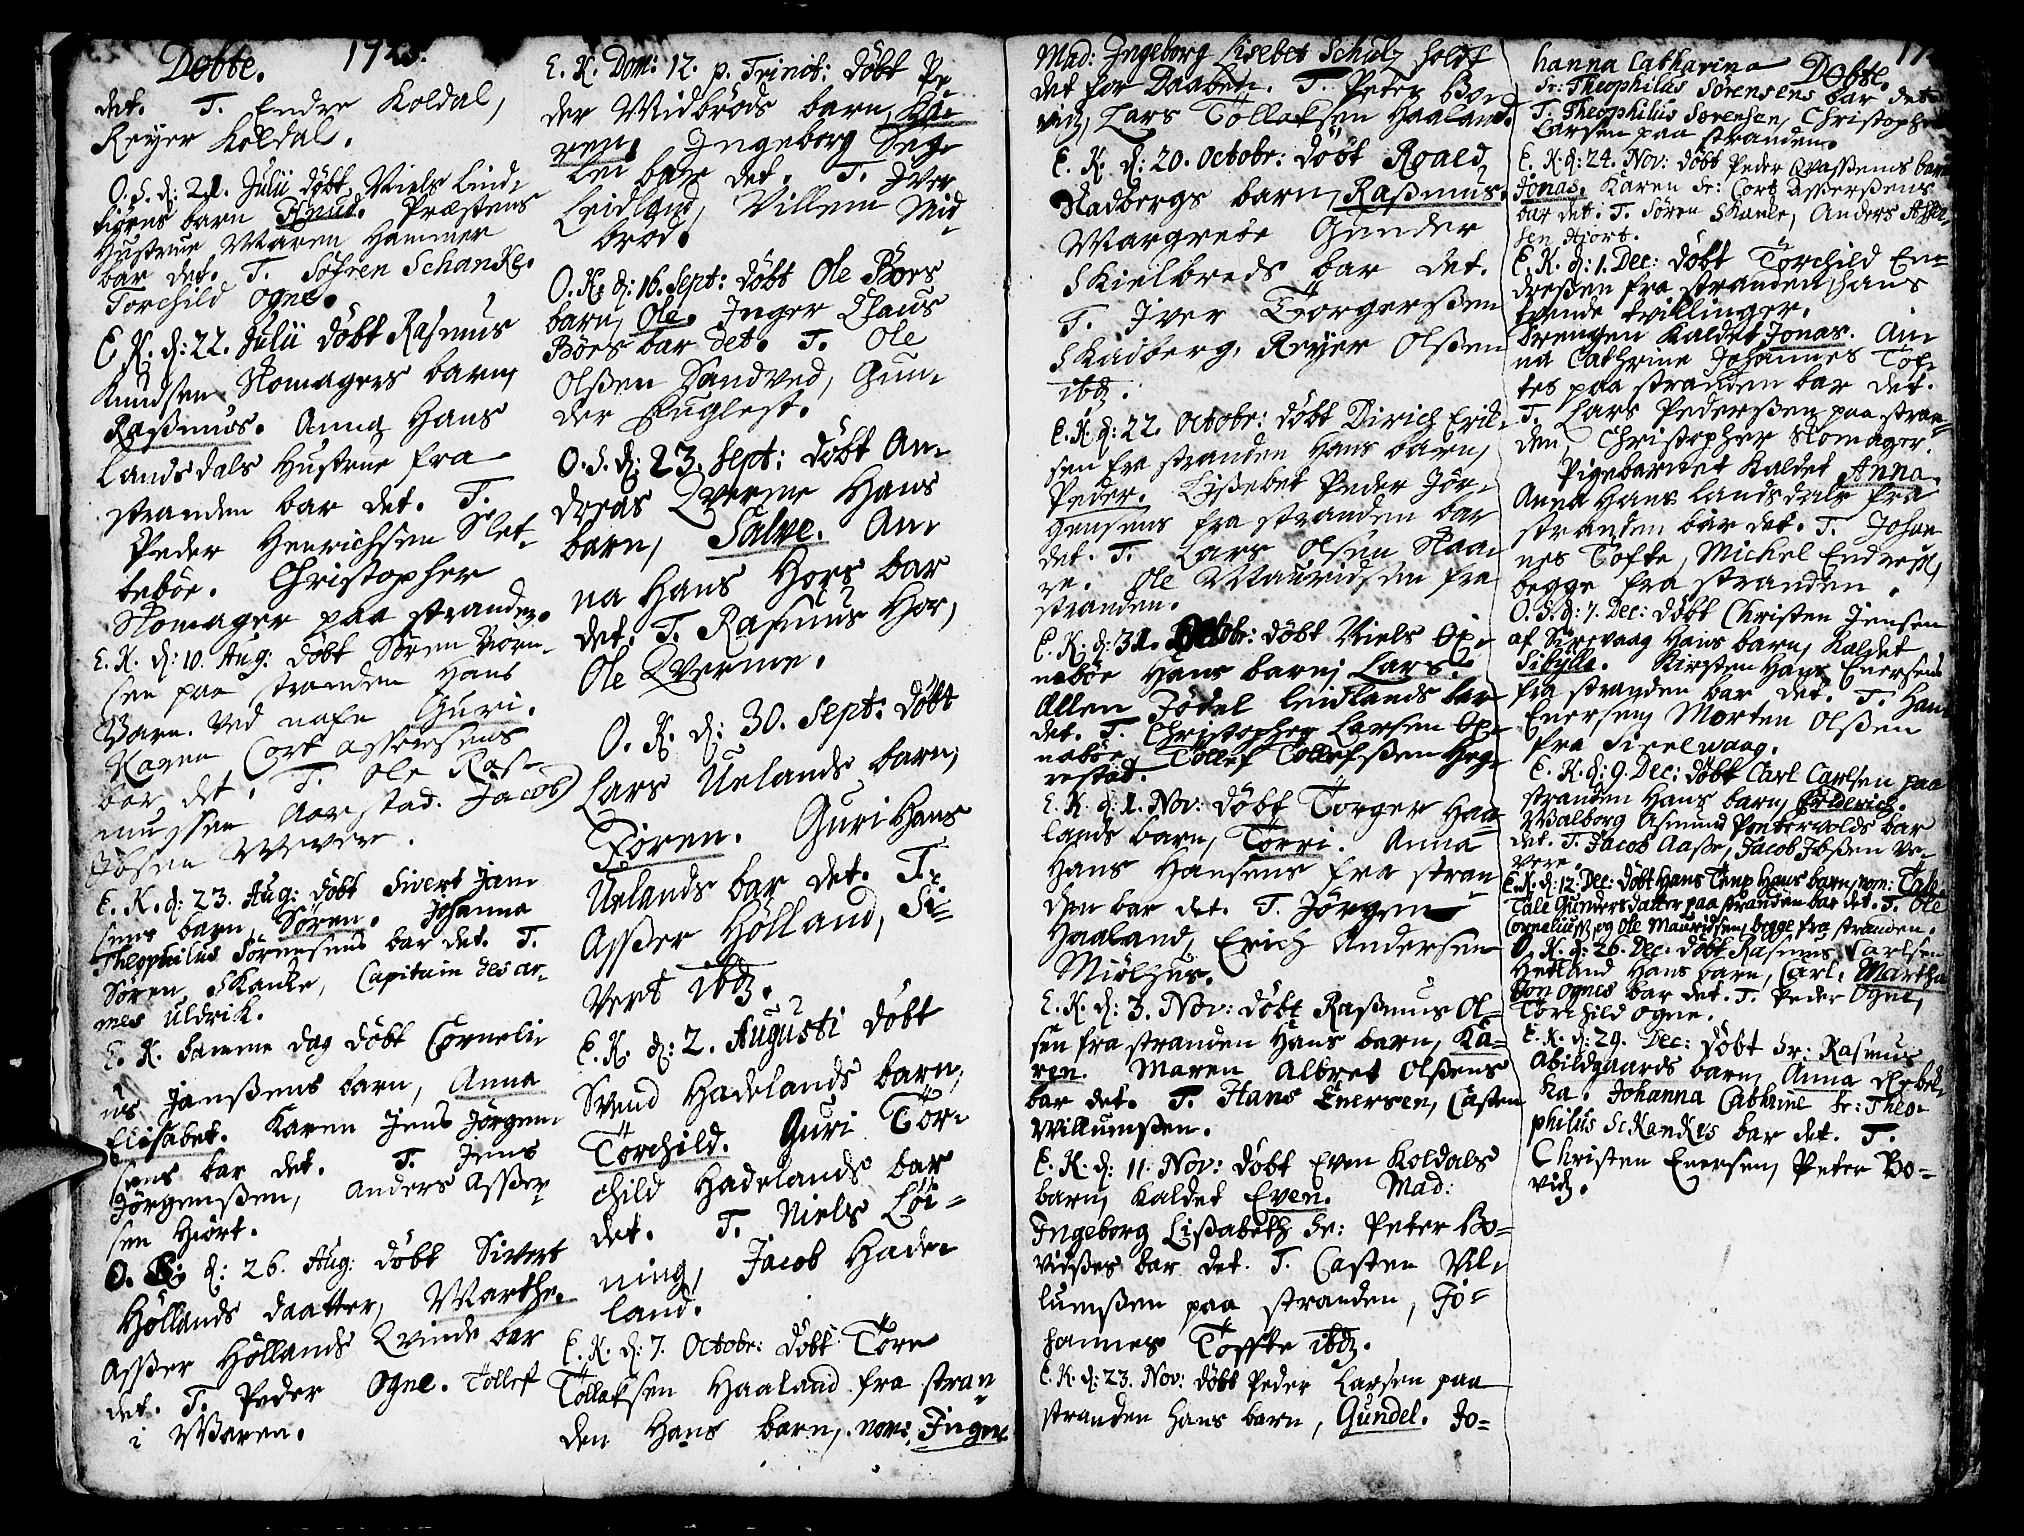 Døbte. 1725.
det. T. Endre Koldal,
Reyer Koldal.
O. S. d: 21. Julii døbt Niels Lind,
tiørns barn Knud. Præstens
Hustrue Maren Hammer
bar det. T. Søfren Schanke.
Torchild Ogne.
E. K. d: 22. Julii døbt Rasmus
Knudsen Stomagers barn,
Rasmus. Anna Hans
Landsdals Hustrue fra
stranden bar det. T.
Peder Henrichsen Slet,
tebøe. Christopher
Stomager paa stranden.
E. K. d: 10. Aug: døbt Søren
sen paa stranden Hans
Barn. ved nafn Guri.
Karen Cort Assersens
bar det. T. Ole Ras-
mussen Aarstad. Jacob
Ibsen Wever.
E. K. d: 23. Aug: døbt Sivert Jan
sens barn, Søren. Johanna
Theophilus Sørensens bar det. T.
Søren Skanke, Capitain des ar-
mes Uldrik.
E. K. Samme dag døbt Corneli
us Janßens barn, Anna
Elisabet. Karen Jens Jørgen
sens bar det. T. Jens
Jørgenßen, Anders Aßer
sen Hiort.
O. K. d: 26. Aug: døbt Sivert
Høllands daatter, Marthe.
Aßer Høllands Qvinde bar
det. T. Peder Ogne. Tollef
i Waren.
E. K. Dom: 12. p. Trinit: døbt Pe
der Midbrøds barn, Ka-
ren. Ingeborg Seg-
lei bar det. T. Iver
Leidland, Villem Mid-
brød.
O. K. d: 16. Sept: døbt Ole Børs
barn, Ole. Inger Claus
Børs bar det. T. Ole
Olßen Sandved, Gun,
der Fuglest.
O. S. d: 23. Sept: døbt An-
dreas Qverme Hans
barn, Salve. An-
na Hans Hors bar
det. T. Rasmus Hor,
Ole Qverme.
O. K. d: 30. Sept: døbt
Lars Uelands barn,
Føren. Guri Hans
Uelands bar det. T.
Aßer Hølland, Si-
vert ibd.
E. K. d: 2. Augusti døbt
Svend Hadelands barn,
Torchild. Guri Tor-
child Hadelands bar
det. T. Niels Løi-
ning, Jacob Hade-
land.
E. K. d: 7. Octobr: døbt Tore
Tollaksen Haaland fra stran
den Hans barn, nom: Inger
Mad: Ingeborg Lisebet Schulz holdt
det for Daaben. T. Peter Bo-
vid, Lars Tollaksen Haaland.
E. K. d: 20. Octobr: døbt Roald
Stadbergs barn, Raßmus.
Margrete Gunder
Skielbreds bar det.
T. Iver Torgerßen
Skadberg, Reyer Olßen
ibd.
E. K. d: 22. Octobr: døbt Dirich Erik-
sen fra stranden Hans barn,
Peder. Lißebet Peder Jør-
gensens fra stranden bar
det. T. Lars Olsen Staa-
re. Ole Mauridsen fra
stranden.
E. K. d: 31. Octobr: døbt Niels Ox-
nebøe Hans barn, Lars.
Allen Jødel Leidlands bar
det. T. Christopher Larsen Ox-
nebøe, Tollef Tollefßen Heg-
restad.
E. K. d: 1. Nov: døbt Torger Haa-
lands barn, Torri. Anna
Hans Hansens fra stran
den bar det. T. Jørgen
Haaland, Erich Andersen
Miølhus.
E. K. d: 3. Nov: døbt Raßmus Ol-
sen fra stranden Hans barn, Ka-
ren. Maren Albret Olßens
bar det. T. Hans Enersen, Casten
Willumßen.
E. K. d: 11. Nov: døbt Even Koldals
barn, kaldet Even. Mad:
Ingeborg Lißabeth Sr: Peter Bo-
vidßes bar det. T. Casten Vil-
lumßen paa stranden, Jo-
hannes Toffte ibd.
E. K. d: 23. Nov: døbt Peder Larsen paa
stranden hans barn, Gundel. Jo-
Døbte. 17
hanna Catharina
Sr: Theophilus Sørensens bar det
T. Theophilus Sørensen, Christopher
Larsen paa stranden.
E. K. d: 24. Nov: døbt Peder Qvaßenms barn
Jonas. Karen Sr: Cort Aßerßens
bar det. T. Søren Skanke, Anders Aßer
sen Hiort.
E. K. d: 1. Dec: døbt Torchild En-
dreßen fra stranden, hans
tvende tvillinger.
Drengen kaldet Jonas. An
na Cathrine Johannes Tof-
tes paa stranden bar det.
T. Lars Pederßen paa stran-
den, Christopher Stomager.
Pigebarnet kaldet Anna.
Anna Hans Landsdals fra
stranden bar det. T. Johan
nes Tofte, Michel Endreß,
begge fra stranden.
O. S. d: 7. Dec: døbt Christen Jensen
af Sirevaag Hans barn, kaldet
Sibylle. Kirsten Hans Enersens
fra stranden bar det. T. Hans
Enersen, Morten Olßen
fra Sirelwaag.
E. K. d: 9. Dec: døbt Carl Carlsen paa
stranden Hans barn, Friderich.
Walborg Asmund Pintervolds bar
det. T. Jacob Aaße, Jacob Ibßen we-
vere.
E. K. d: 12. Dec: døbt Hans Tanp Hans barn, nom: Tale.
Tale Gunders datter paa stranden bar det. T. Ole
Corneliuß, og Ole Mauridsen, begge fra stranden.
O. K. d: 26. Dec. døbt Rasmus Carlsen
Hetland Hans barn, Carl. Martha
Jon Ognes bar det. T. Peder Ogne,
Torchild Ogne.
E. K. d: 29. Dec: døbt Sr: Rasmus
Abildgaards barn, Anna Rebek-
ka. Johanna Cathrine Sr: Theo-
philus Schankes bar det. T.
Christen Enersen, Peter Bo-
vid.